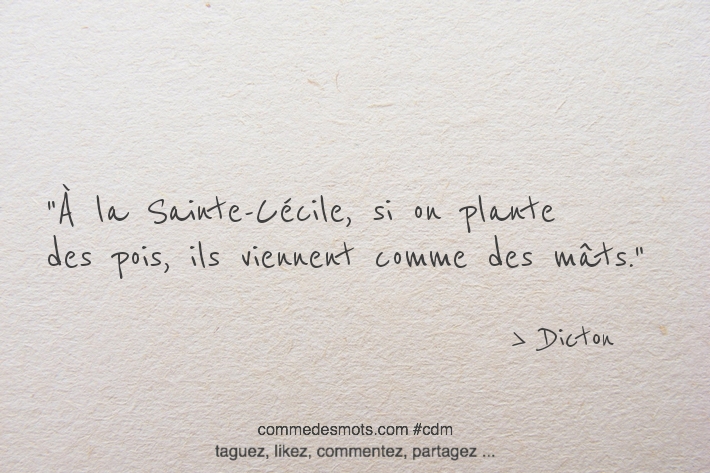 "À la Sainte-Cécile, si on plante
des pois, ils viennent comme des mâts."
> Dicton
commedesmots.com #cdm
taguez, likez, commentez, partagez ...